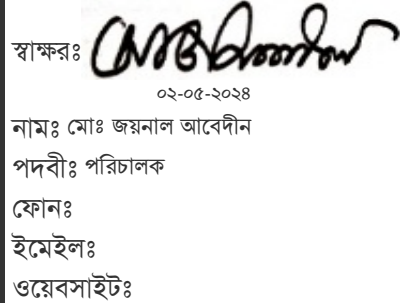 স্বাক্ষরঃ
০২-০৫-২০২৪
নামঃ মোঃ জয়নাল আবেদীন
পদবীঃ পরিচালক
ফোনঃ
ইমেইলঃ
ওয়েবসাইটঃ